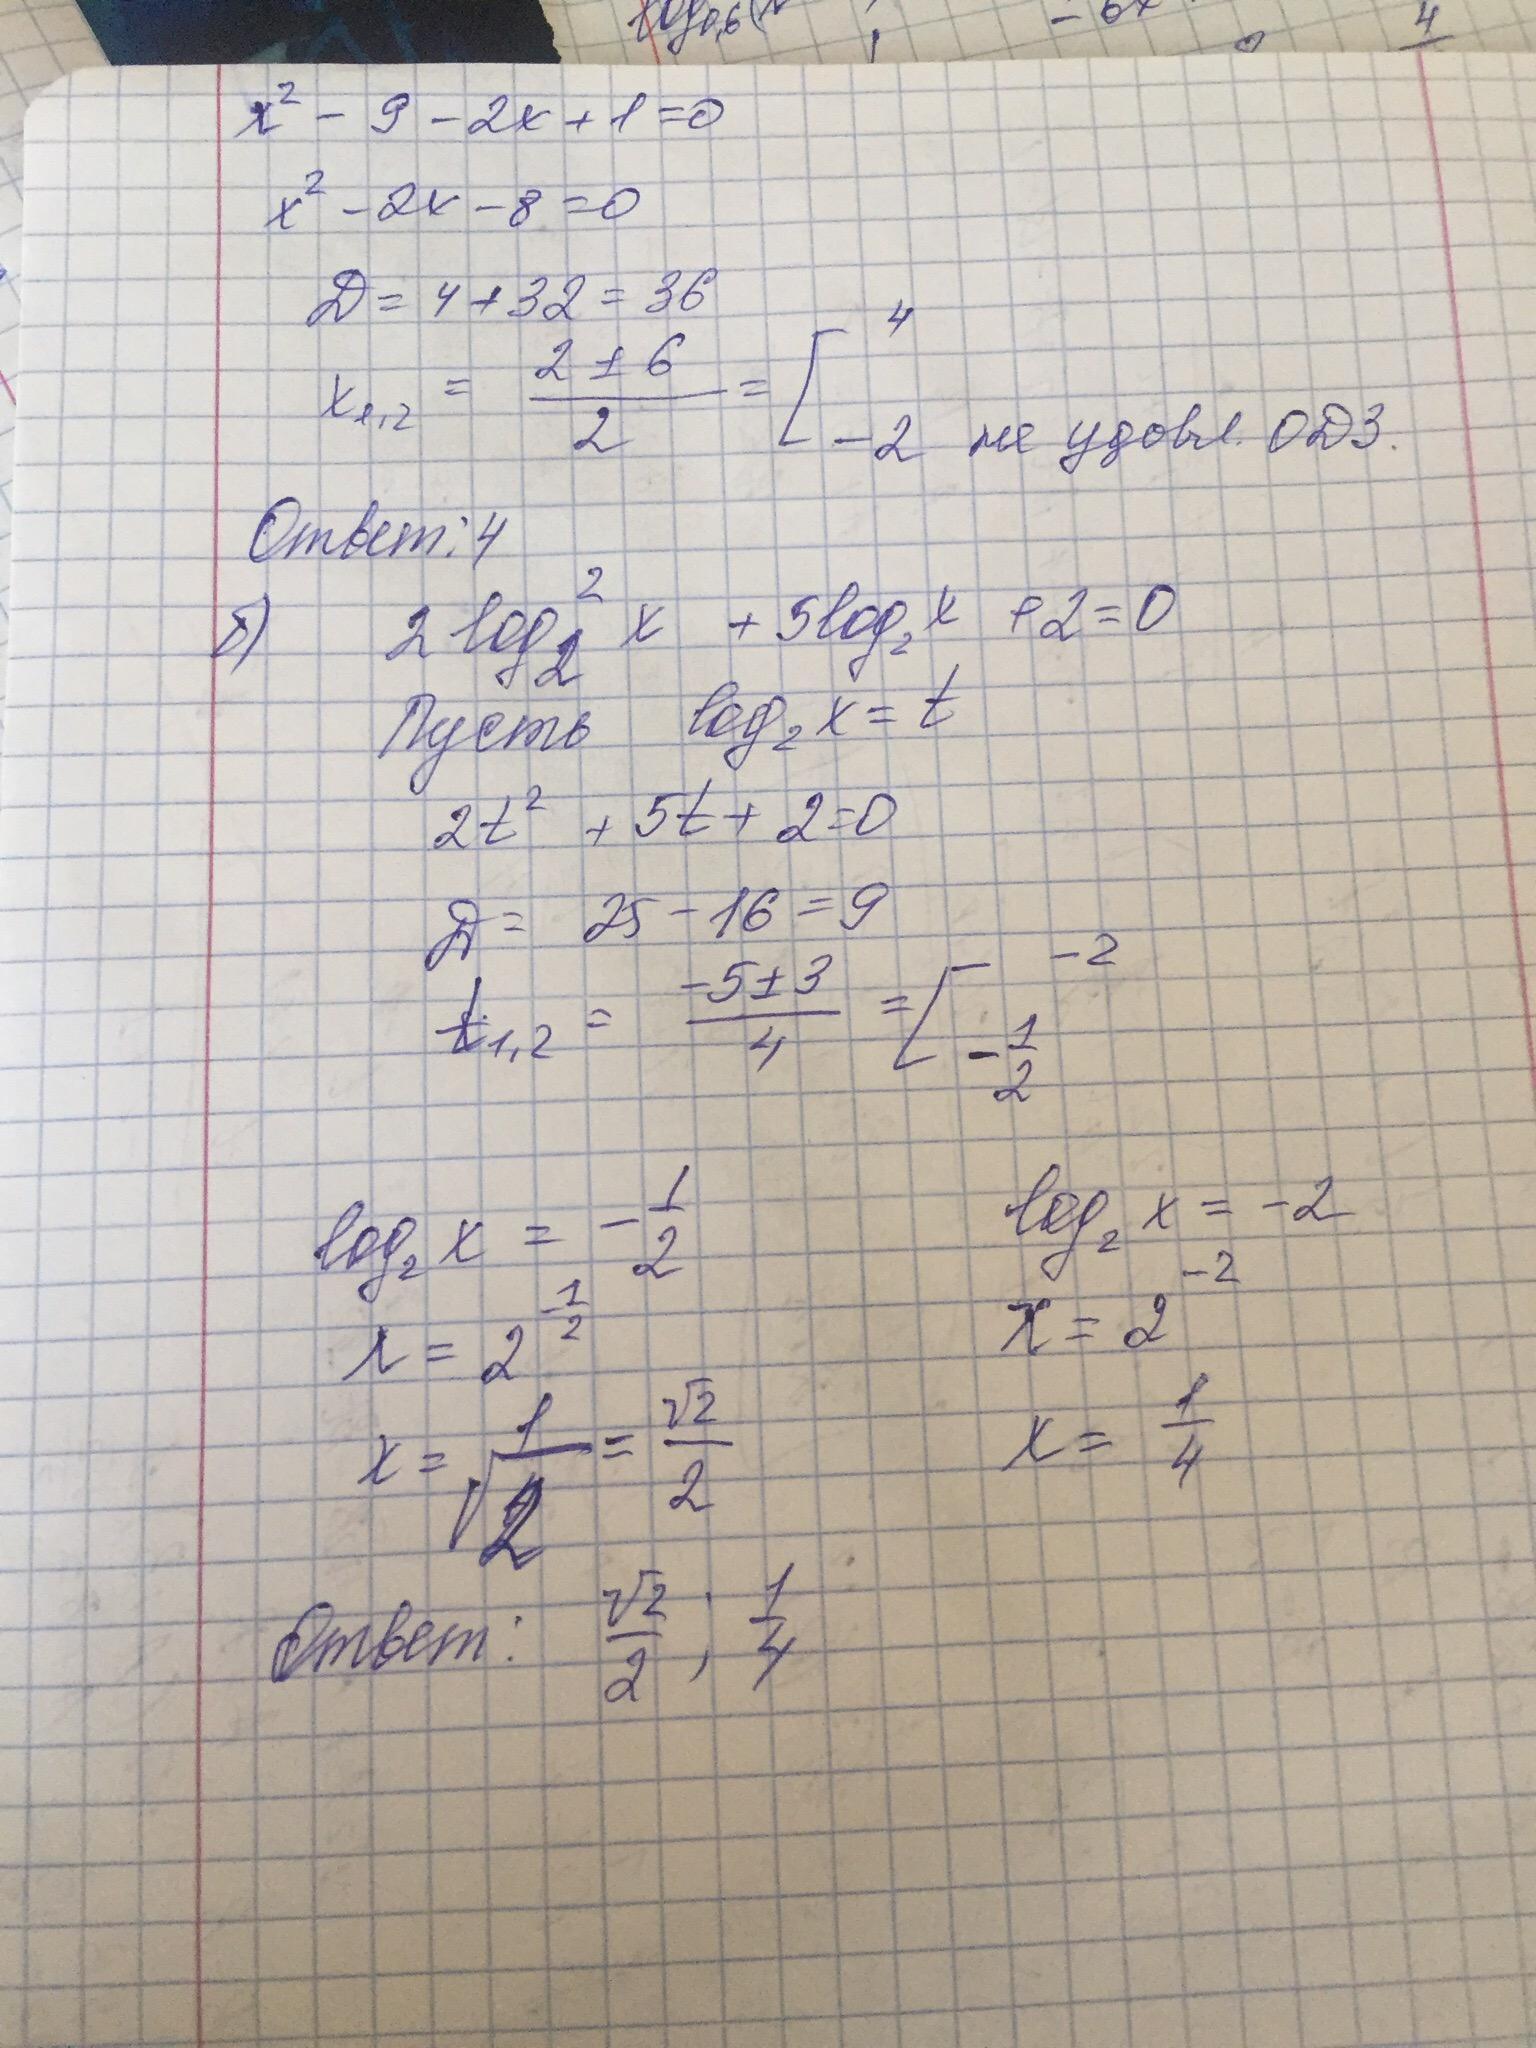 log₀,₆(
- 6x
4
x² - 9 - 2x + 1 = 0
x² - 2x - 8 = 0
Д = 4 + 32 = 36
x₁,₂ = (2 ± 6)/2 = [ 4
-2 не удовл. ОДЗ.
Ответ: 4
б) 2 log₂² x + 5 log₂ x + 2 = 0
Пусть log₂ x = t
2t² + 5t + 2 = 0
Д = 25 - 16 = 9
t₁,₂ = (-5 ± 3)/4 = [ -2
-1/2
log₂ x = -1/2 log₂ x = -2
x = 2^(-1/2) x = 2^(-2)
x = √(1/2) = √2/2 x = 1/4
Ответ: √2/2 ; 1/4